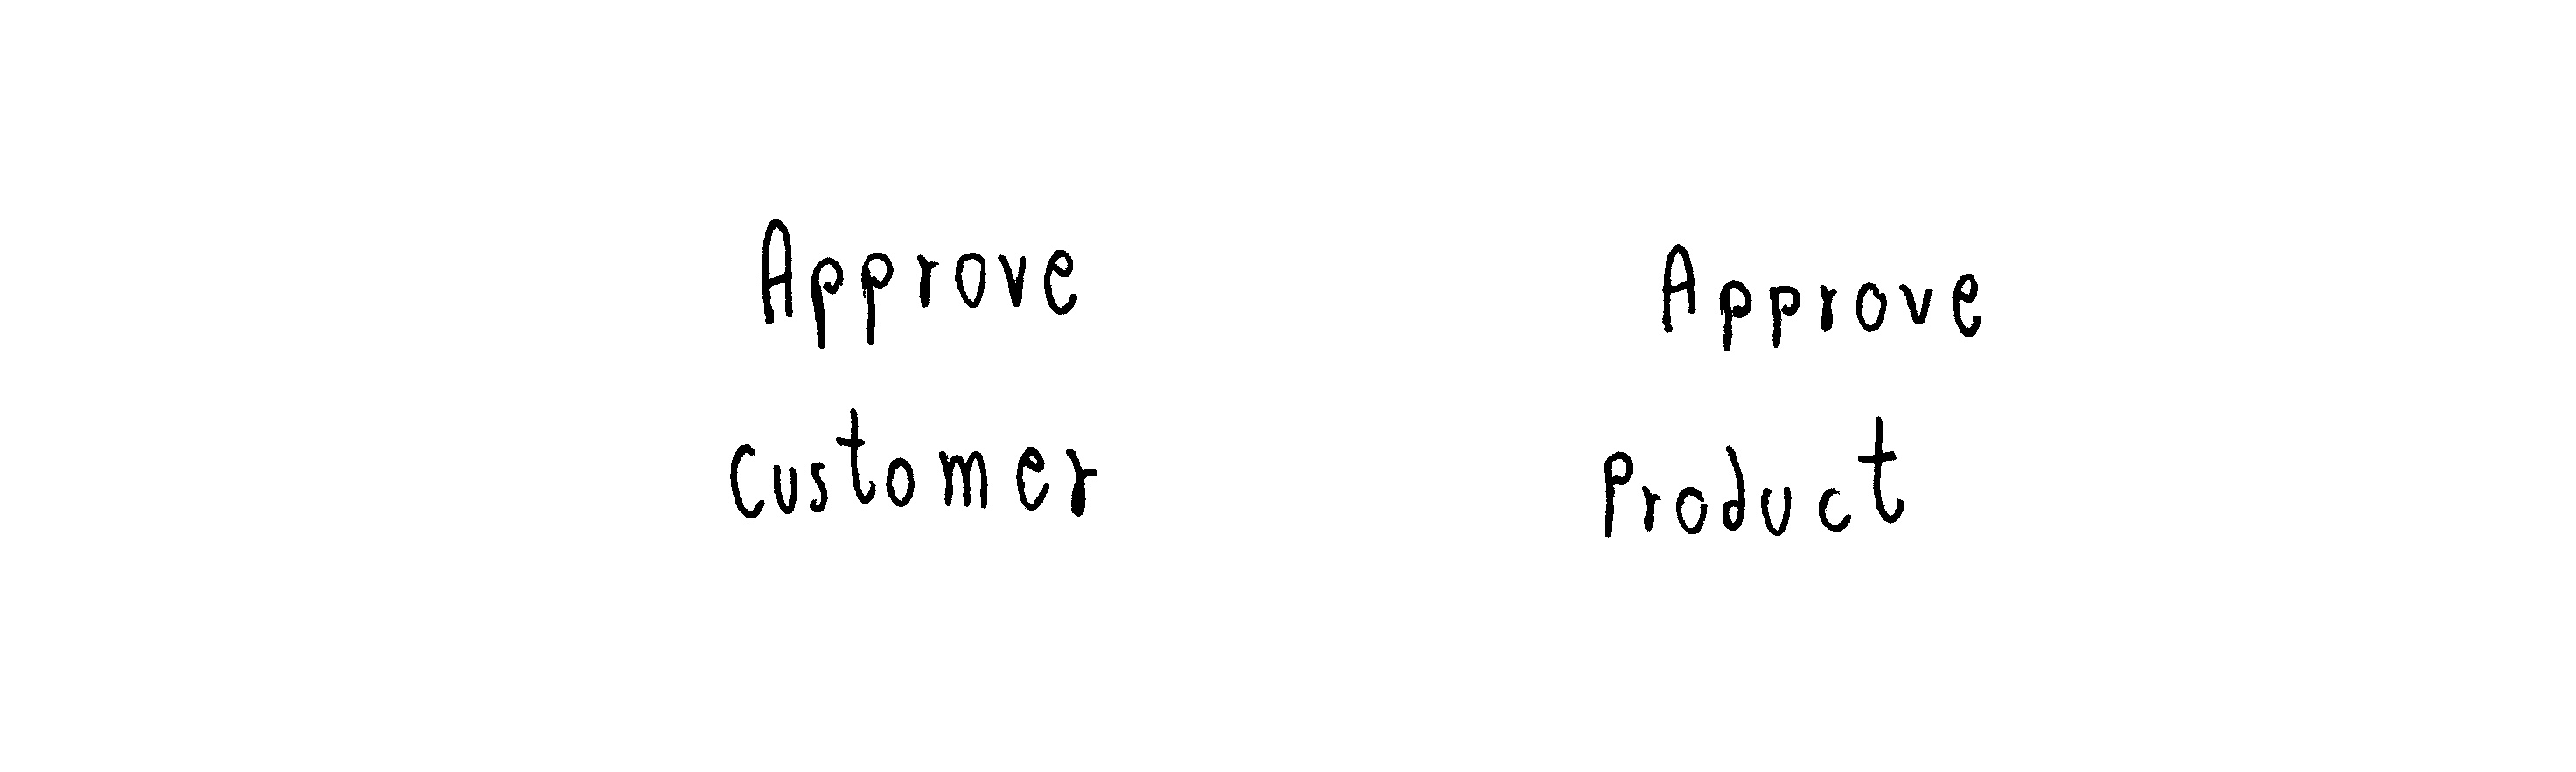 Approve
Customer
Approve
Product